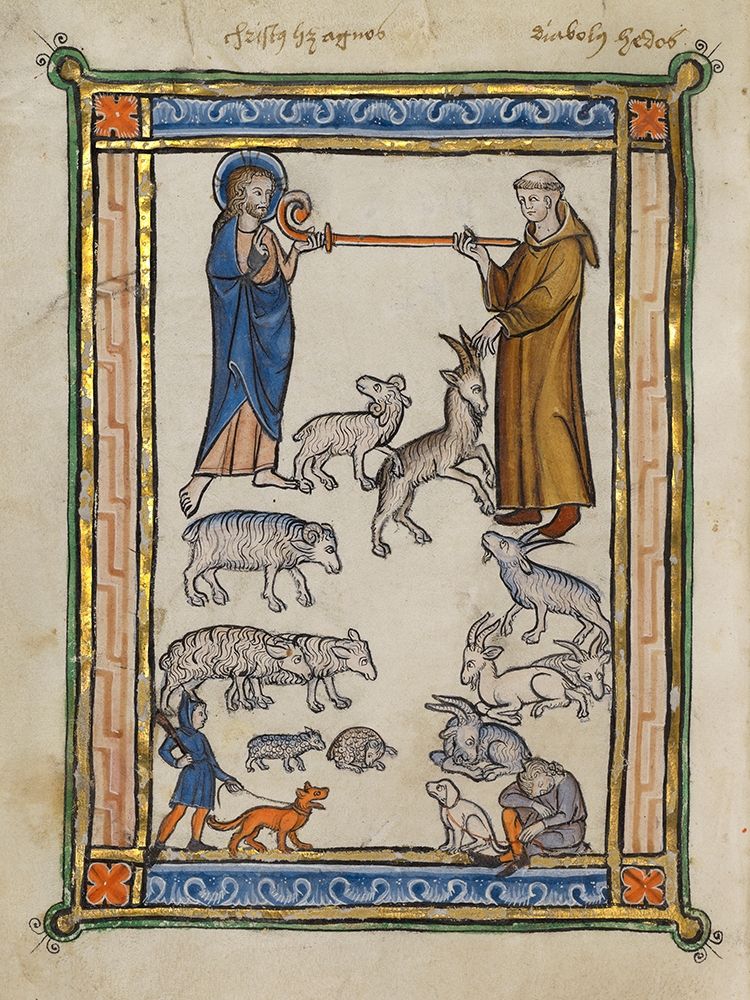 christus hz agnos diabolus hedos